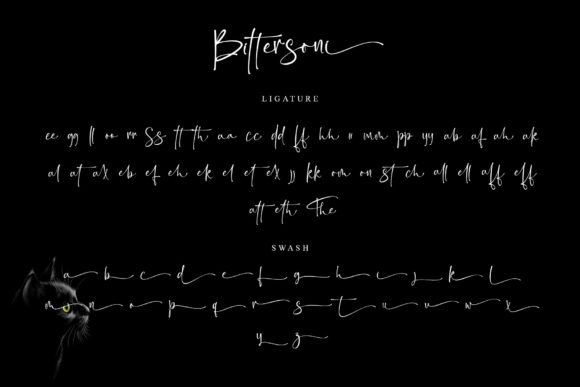 Bittersoni
LIGATURE
ee gg ll oo rr Ss tt th aa cc dd ff hh ii mm pp yy ab af ah ak
al at ax eb ef eh ek el et ex jj kk om on st ch all ell aff eff
att eth The
SWASH
a b c d e f g h i j k l
m n o p q r s t u v w x
y z